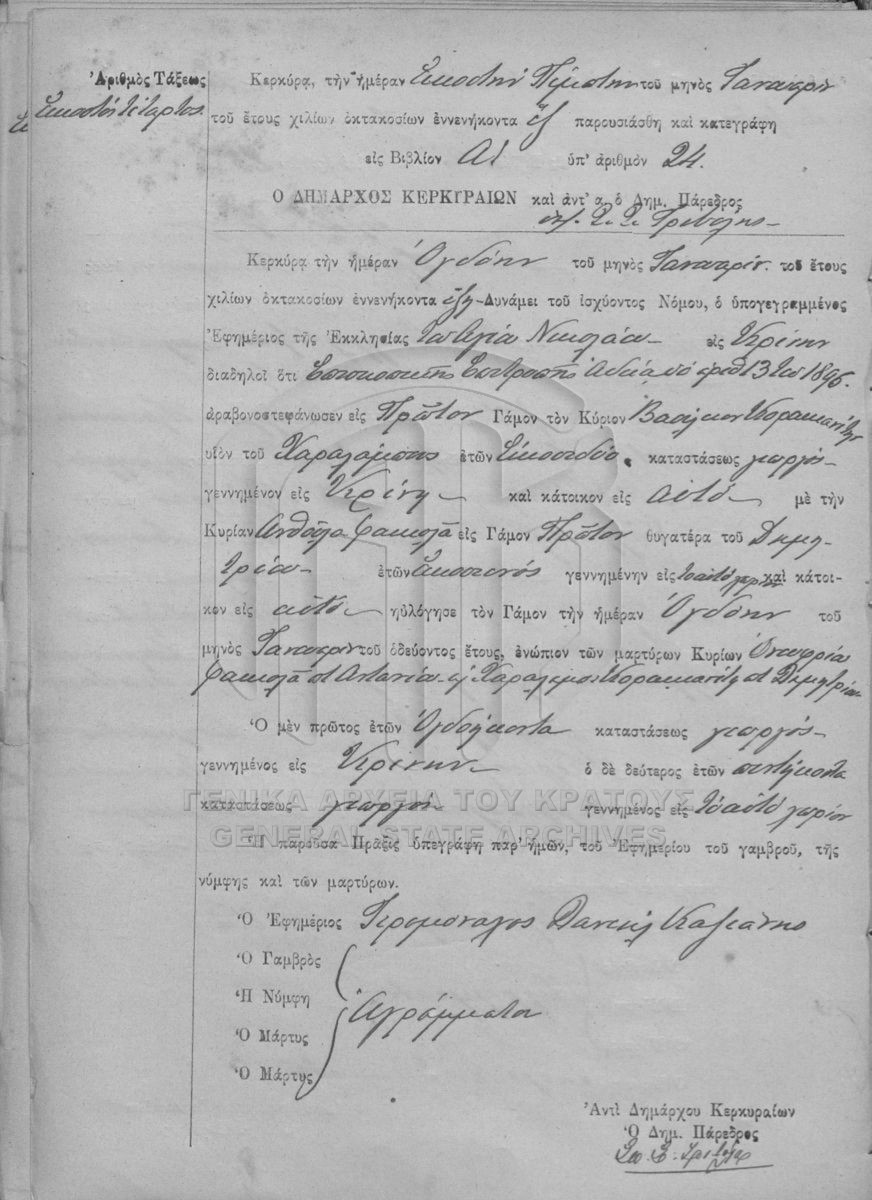 Ἀριθμὸς Τάξεως
Εἰκοστός τέταρτος
Κερκύρα, τὴν ἡμέραν Εἰκοστήν Πέμπτην τοῦ μηνὸς Ἰανουαρίου
τοῦ ἔτους χιλίων ὀκτακοσίων ἐννενήκοντα ἕξ παρουσιάσθη καὶ κατεγράφη
εἰς Βιβλίον Α1 ὑπ' ἀριθμὸν 24.
Ο ΔΗΜΑΡΧΟΣ ΚΕΡΚΥΡΑΙΩΝ καὶ ἀντ' α. ὁ Δημ. Πάρεδρος
Κερκύρα τὴν ἡμέραν Ὀγδόην τοῦ μηνὸς Ἰανουαρίου τοῦ ἔτους
χιλίων ὀκτακοσίων ἐννενήκοντα ἕξη Δυνάμει τοῦ ἰσχύοντος Νόμου, ὁ ὑπογεγραμμένος
Ἐφημέριος τῆς Ἐκκλησίας τοῦ Ἁγίου Νικολάου εἰς Κρίνην
διαδηλοῖ ὅτι Ἐπισκοπικῆς Ἐπιτροπῆς Ἀδεία ὑπ' ἀριθ 13 τοῦ 1896.
ἀραβονοστεφάνωσεν εἰς Πρῶτον Γάμον τὸν Κύριον Βασίλειον Κορακιανίτην
υἱὸν τοῦ Χαραλάμπους ἐτῶν Εἰκοσιδύο καταστάσεως γεωργός
γεννημένον εἰς Κρίνη καὶ κάτοικον εἰς αὐτό μὲ τὴν
Κυρίαν Ἀνθούλα Φακιολᾶ εἰς Γάμον Πρῶτον θυγατέρα τοῦ Δημη
τρίου ἐτῶν Εἰκοσιενός γεννημένην εἰς τὸ αὐτό χωρίον καὶ κάτοι-
κον εἰς αὐτό ηὐλόγησε τὸν Γάμον τὴν ἡμέραν Ὀγδόην τοῦ
μηνὸς Ἰανουαρίου τοῦ ὁδεύοντος ἔτους, ἐνώπιον τῶν μαρτύρων Κυρίων Ὀνουφρίου
Φακιολᾶ Ἀντωνίου Χαραλάμπους Κορακιανίτη Δημητρίου
Ὁ μὲν πρῶτος ἐτῶν Ὀγδοήκοντα καταστάσεως γεωργός
γεννημένος εἰς Κρίνην ὁ δὲ δεύτερος ἐτῶν πεντήκοντα
καταστάσεως γεωργός γεννημένος εἰς τὸ αὐτό χωρίον
ΓΕΝΙΚΑ ΑΡΧΕΙΑ ΤΟΥ ΚΡΑΤΟΥΣ
GENERAL STATE ARCHIVES
Ἡ παροῦσα Πρᾶξις ὑπεγράφη παρ' ἡμῶν, τοῦ Ἐφημερίου τοῦ γαμβροῦ, τῆς
νύμφης καὶ τῶν μαρτύρων.
Ὁ Ἐφημέριος Ἱερομόναχος Δανιήλ
Ὁ Γαμβρὸς
Ἡ Νύμφη
Ἀγράμματοι
Ὁ Μάρτυς
Ὁ Μάρτυς
Ἀντὶ Δημάρχου Κερκυραίων
Ὁ Δημ. Πάρεδρος